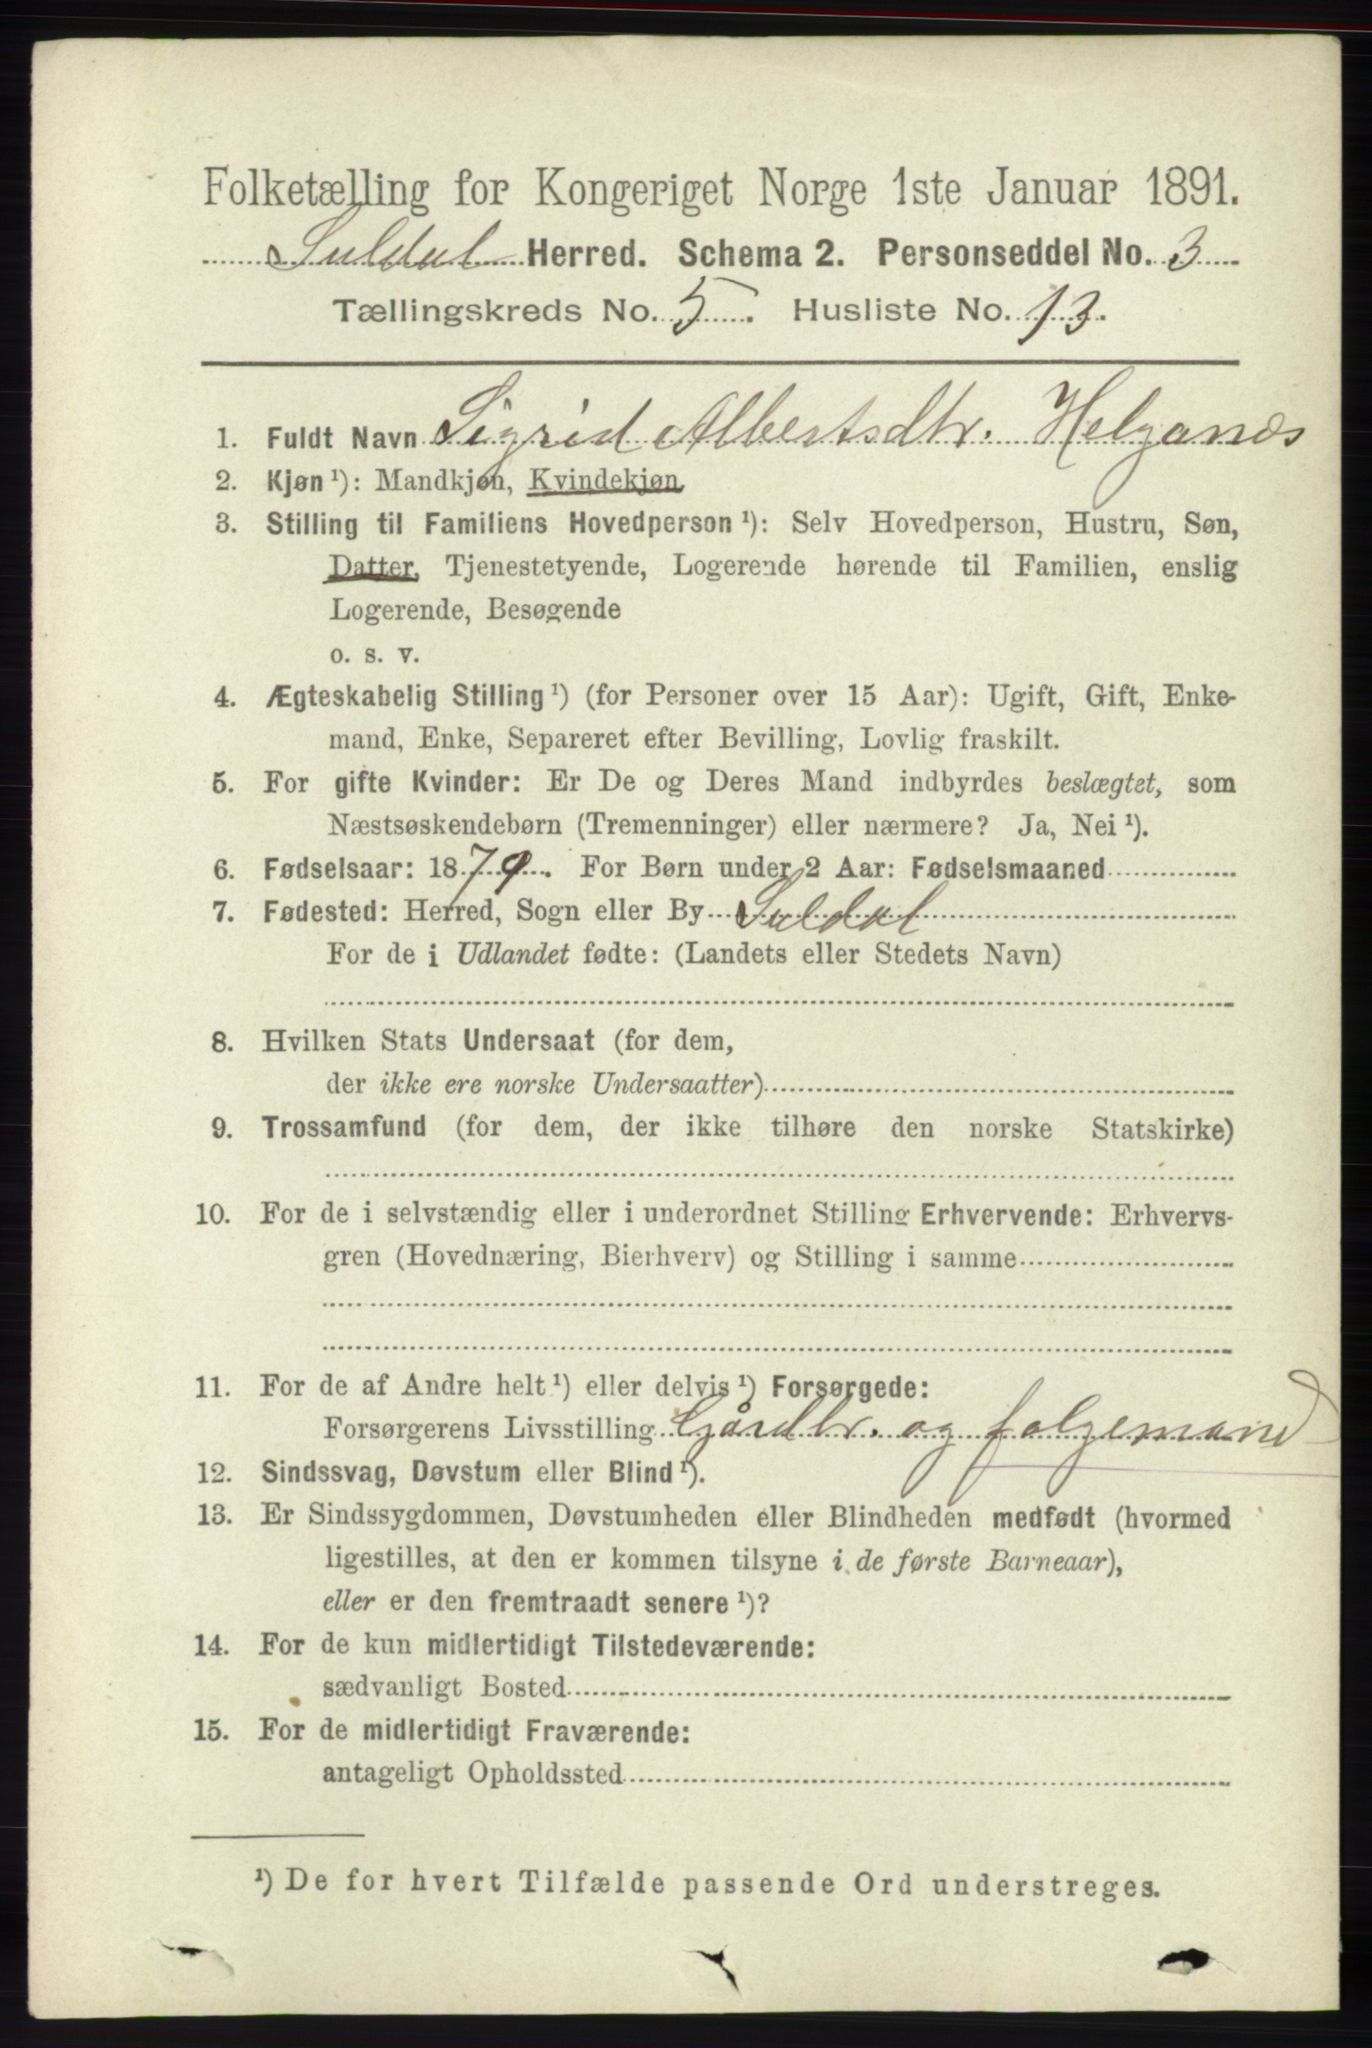 Folketælling for Kongeriget Norge 1ste Januar 1891.
Suldal Herred. Schema 2. Personseddel No. 3
Tællingskreds No. 5. Husliste No. 13.
1. Fuldt Navn Sigrid Albertsdtr. Helganæs
2. Kjøn ¹): Mandkjøn, Kvindekjøn
3. Stilling til Familiens Hovedperson ¹): Selv Hovedperson, Hustru, Søn,
Datter, Tjenestetyende, Logerende hørende til Familien, enslig
Logerende, Besøgende
o. s. v.
4. Ægteskabelig Stilling ¹) (for Personer over 15 Aar): Ugift, Gift, Enke-
mand, Enke, Separeret efter Bevilling, Lovlig fraskilt.
5. For gifte Kvinder: Er De og Deres Mand indbyrdes beslægtet, som
Næstsøskendebørn (Tremenninger) eller nærmere? Ja, Nei ¹).
6. Fødselsaar: 1879. For Børn under 2 Aar: Fødselsmaaned
7. Fødested: Herred, Sogn eller By Suldal
For de i Udlandet fødte: (Landets eller Stedets Navn)
8. Hvilken Stats Undersaat (for dem,
der ikke ere norske Undersaatter)
9. Trossamfund (for dem, der ikke tilhøre den norske Statskirke)
10. For de i selvstændig eller i underordnet Stilling Erhvervende: Erhvervs-
gren (Hovednæring, Bierhverv) og Stilling i samme
11. For de af Andre helt ¹) eller delvis ¹) Forsørgede:
Forsørgerens Livsstilling Gårdbr. og folgemand
12. Sindssvag, Døvstum eller Blind ¹).
13. Er Sindssygdommen, Døvstumheden eller Blindheden medfødt (hvormed
ligestilles, at den er kommen tilsyne i de første Barneaar),
eller er den fremtraadt senere ¹)?
14. For de kun midlertidigt Tilstedeværende:
sædvanligt Bosted
15. For de midlertidigt Fraværende:
antageligt Opholdssted
¹) De for hvert Tilfælde passende Ord understreges.